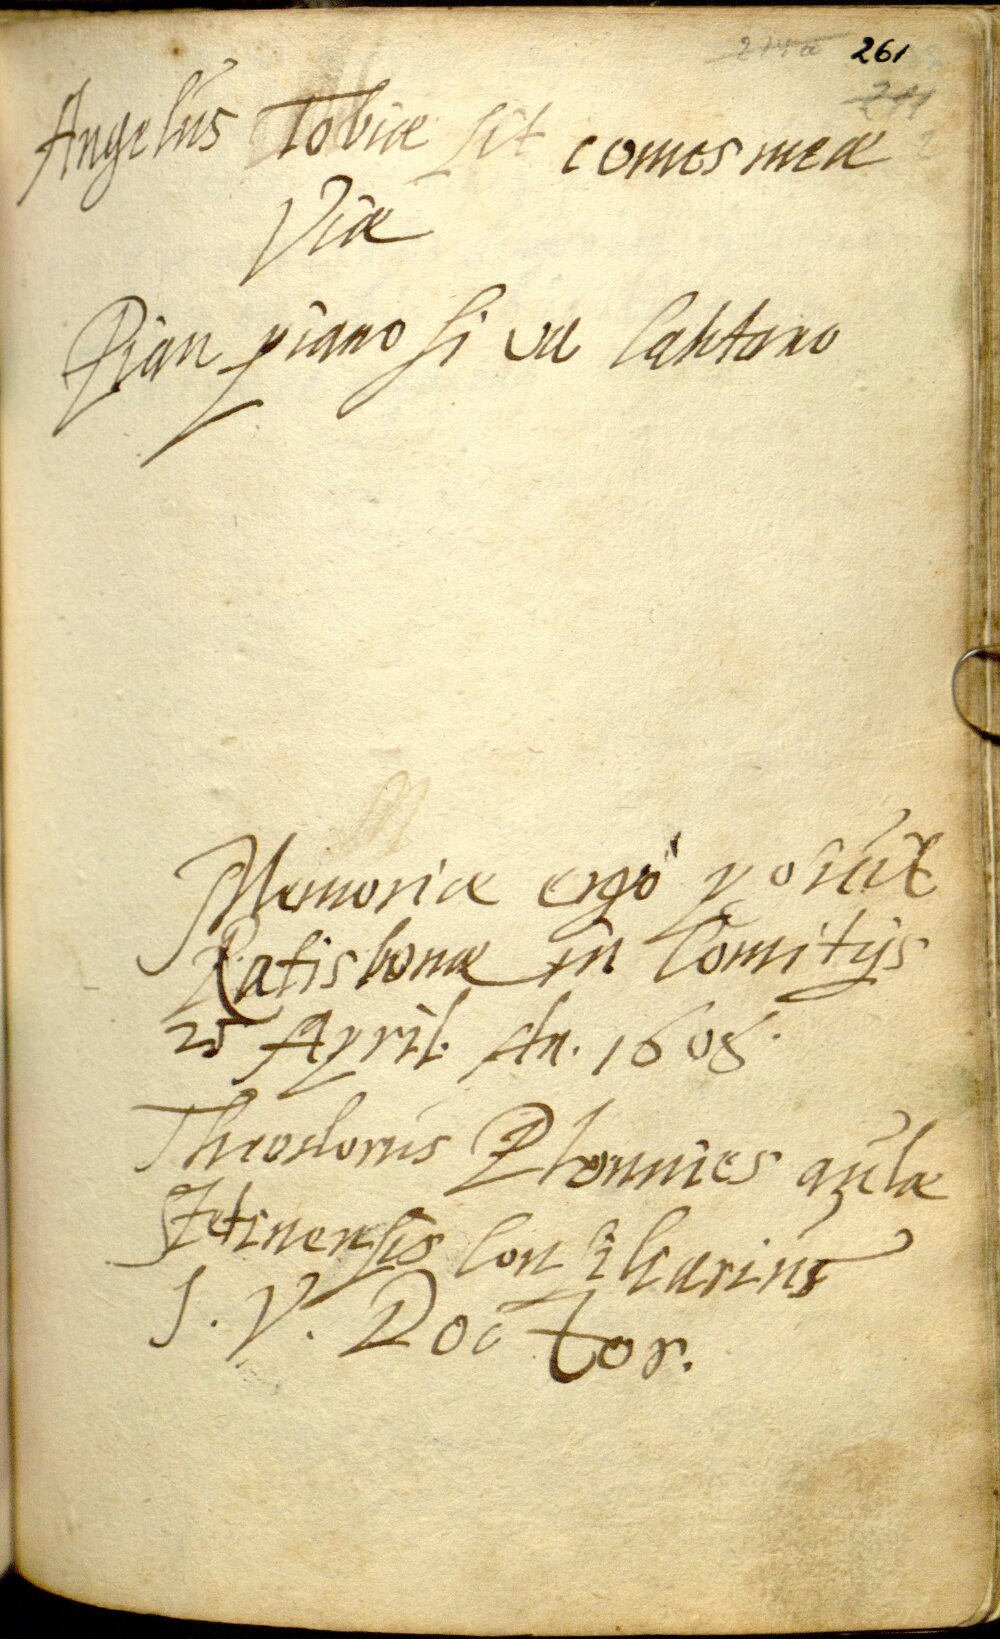 261
Angelus Tobiæ sit comes meæ
Viæ
Pian piano si va lahtano
Memoriæ ergò posuit
Ratisbonæ in Comitijs
25 April. An. 1608.
Theodorus Plonnies aulæ
Stetinensis Consiliarius
J. V. Doctor.